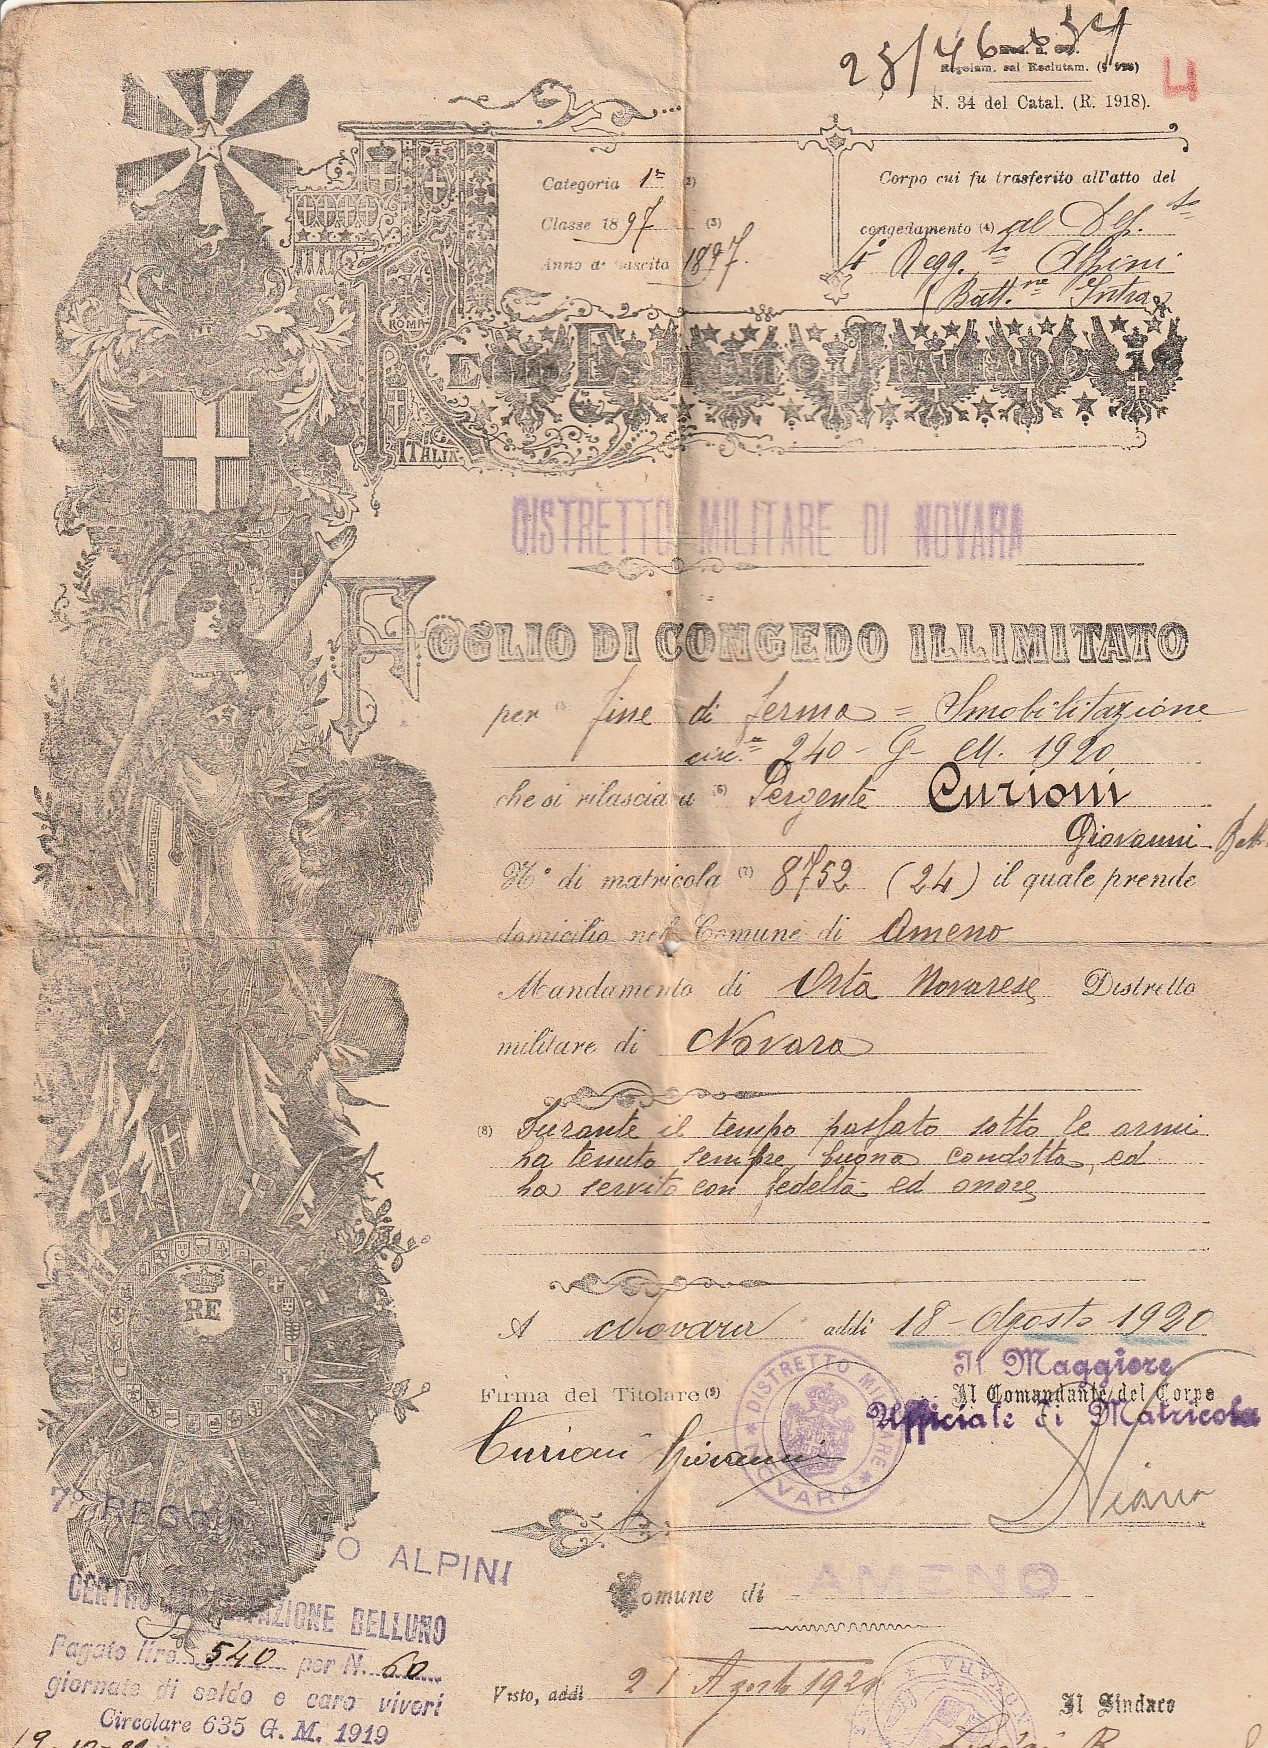 23/46834
Regolam. sul Reclutam. (§ 926)
4
N. 34 del Catal. (R. 1918).
Categoria 1ª (2)
Classe 1897 (3)
Anno di nascita 1897.
Corpo cui fu trasferito all'atto del
congedamento (4) al Dep.to
4° Regg.to Alpini
(Batt.ne Intra)
ROMA
REGIO ESERCITO ITALIANO
ITALIA
DISTRETTO MILITARE DI NOVARA
FOGLIO DI CONGEDO ILLIMITATO
per fine di ferma = Smobilitazione
circ.re 240 - G. M. 1920
che si rilascia a (6) Sergente Curioni
Giovanni Batt.
N° di matricola (7) 8752 (24) il quale prende
domicilio nel Comune di Ameno
Mandamento di Orta Novarese Distretto
militare di Novara
(8) Durante il tempo passato sotto le armi
ha tenuto sempre buona condotta, ed
ha servito con fedeltà ed onore
RE
A Novara addì 18 - Agosto 1920
Il Maggiore
Firma del Titolare (9)
Il Comandante del Corpo
Ufficiale di Matricola
DISTRETTO MILITARE
NOVARA
Curioni Giovanni
7° REGGIMENTO ALPINI
CENTRO MOBILITAZIONE BELLUNO
Comune di AMENO
Pagate lire 540 per N. 60
giornate di soldo e caro viveri
Circolare 635 G. M. 1919
Visto, addì 21 Agosto 1920
Il Sindaco
NOVARA